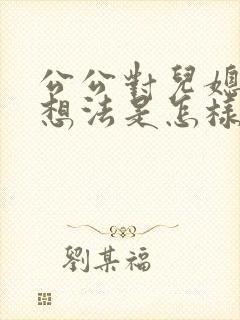 公公對兒媳
想法是怎樣
劉某福